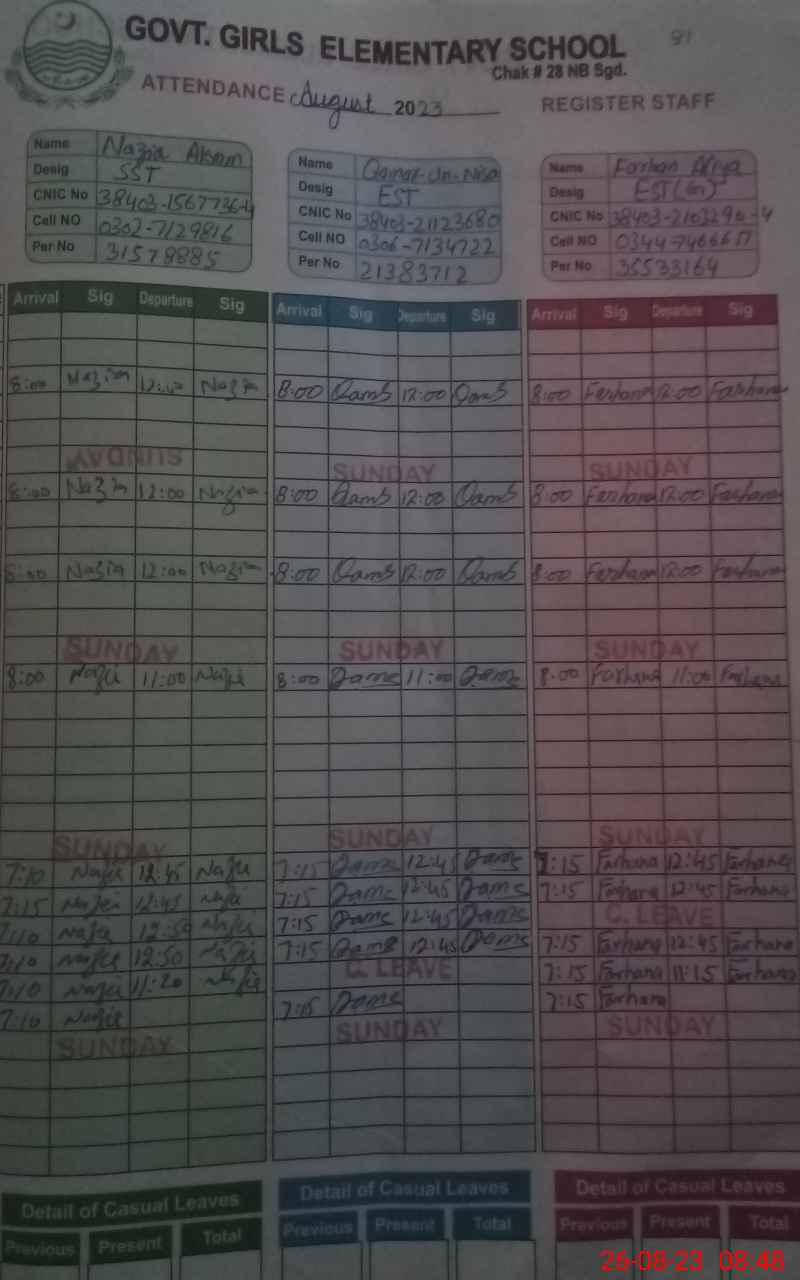 GOVT. GIRLS ELEMENTARY SCHOOL 91
Chak # 28 NB Sgd.
ATTENDANCE August 2023 REGISTER STAFF
Name Nazia Akram Name Qamar-Un-Nisa Name Farhan
Desig SST Desig EST Desig EST
CNIC No 38403-1567736-4 CNIC No 38403-21123680 CNIC No 38403-2103290-4
Cell NO 0302-7129816 Cell NO 0306-7134722 Cell NO
Per No 31578885 Per No 21383712 Per No 35533164
Arrival Sig Departure Sig Arrival Sig Departure Sig Arrival Sig Departure Sig
8:00 Nazia 12:00 Nazia 8:00 QamS 12:00 QamS 8:00 Farhana 12:00 Farhana
SUNDAY SUNDAY SUNDAY
8:00 Nazia 12:00 Nazia 8:00 QamS 12:00 QamS 8:00 Farhana 12:00 Farhana
8:00 Nazia 12:00 Nazia 8:00 QamS 12:00 QamS 8:00 Farhana 12:00 Farhana
SUNDAY SUNDAY SUNDAY
8:00 Nazia 11:00 Nazia 8:00 QamS 11:00 QamS 8:00 Farhana 11:00 Farhana
SUNDAY SUNDAY SUNDAY
7:10 Nazia 12:45 Nazia 7:15 QamS 12:45 QamS 7:15 Farhana 12:45 Farhana
7:15 Nazia 12:45 Nazia 7:15 QamS 12:45 QamS 7:15 Farhana 12:45 Farhana
7:10 Nazia 12:50 Nazia 7:15 QamS 12:45 QamS C. LEAVE
7:10 Nazia 12:50 Nazia 7:15 QamS 12:45 QamS 7:15 Farhana 12:45 Farhana
7:10 Nazia 11:20 Nazia C. LEAVE 7:15 Farhana 11:15 Farhana
7:10 Nazia 7:15 QamS 7:15 Farhana
SUNDAY SUNDAY SUNDAY
Detail of Casual Leaves Detail of Casual Leaves Detail of Casual Leaves
Previous Present Total Previous Present Total Previous Present Total
26-08-23 08:48